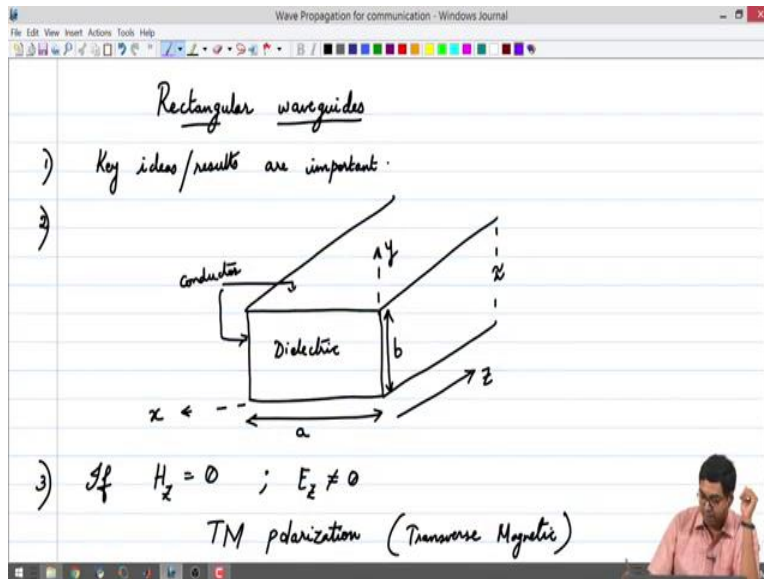 Wave Propagation for communication - Windows Journal
File Edit View Insert Actions Tools Help
Rectangular waveguides
1) Key ideas/results are important.
2)
y
conductor
z
Dielectric
b
z
x
a
3) If H_z = 0 ; E_z ≠ 0
TM polarization (Transverse Magnetic)